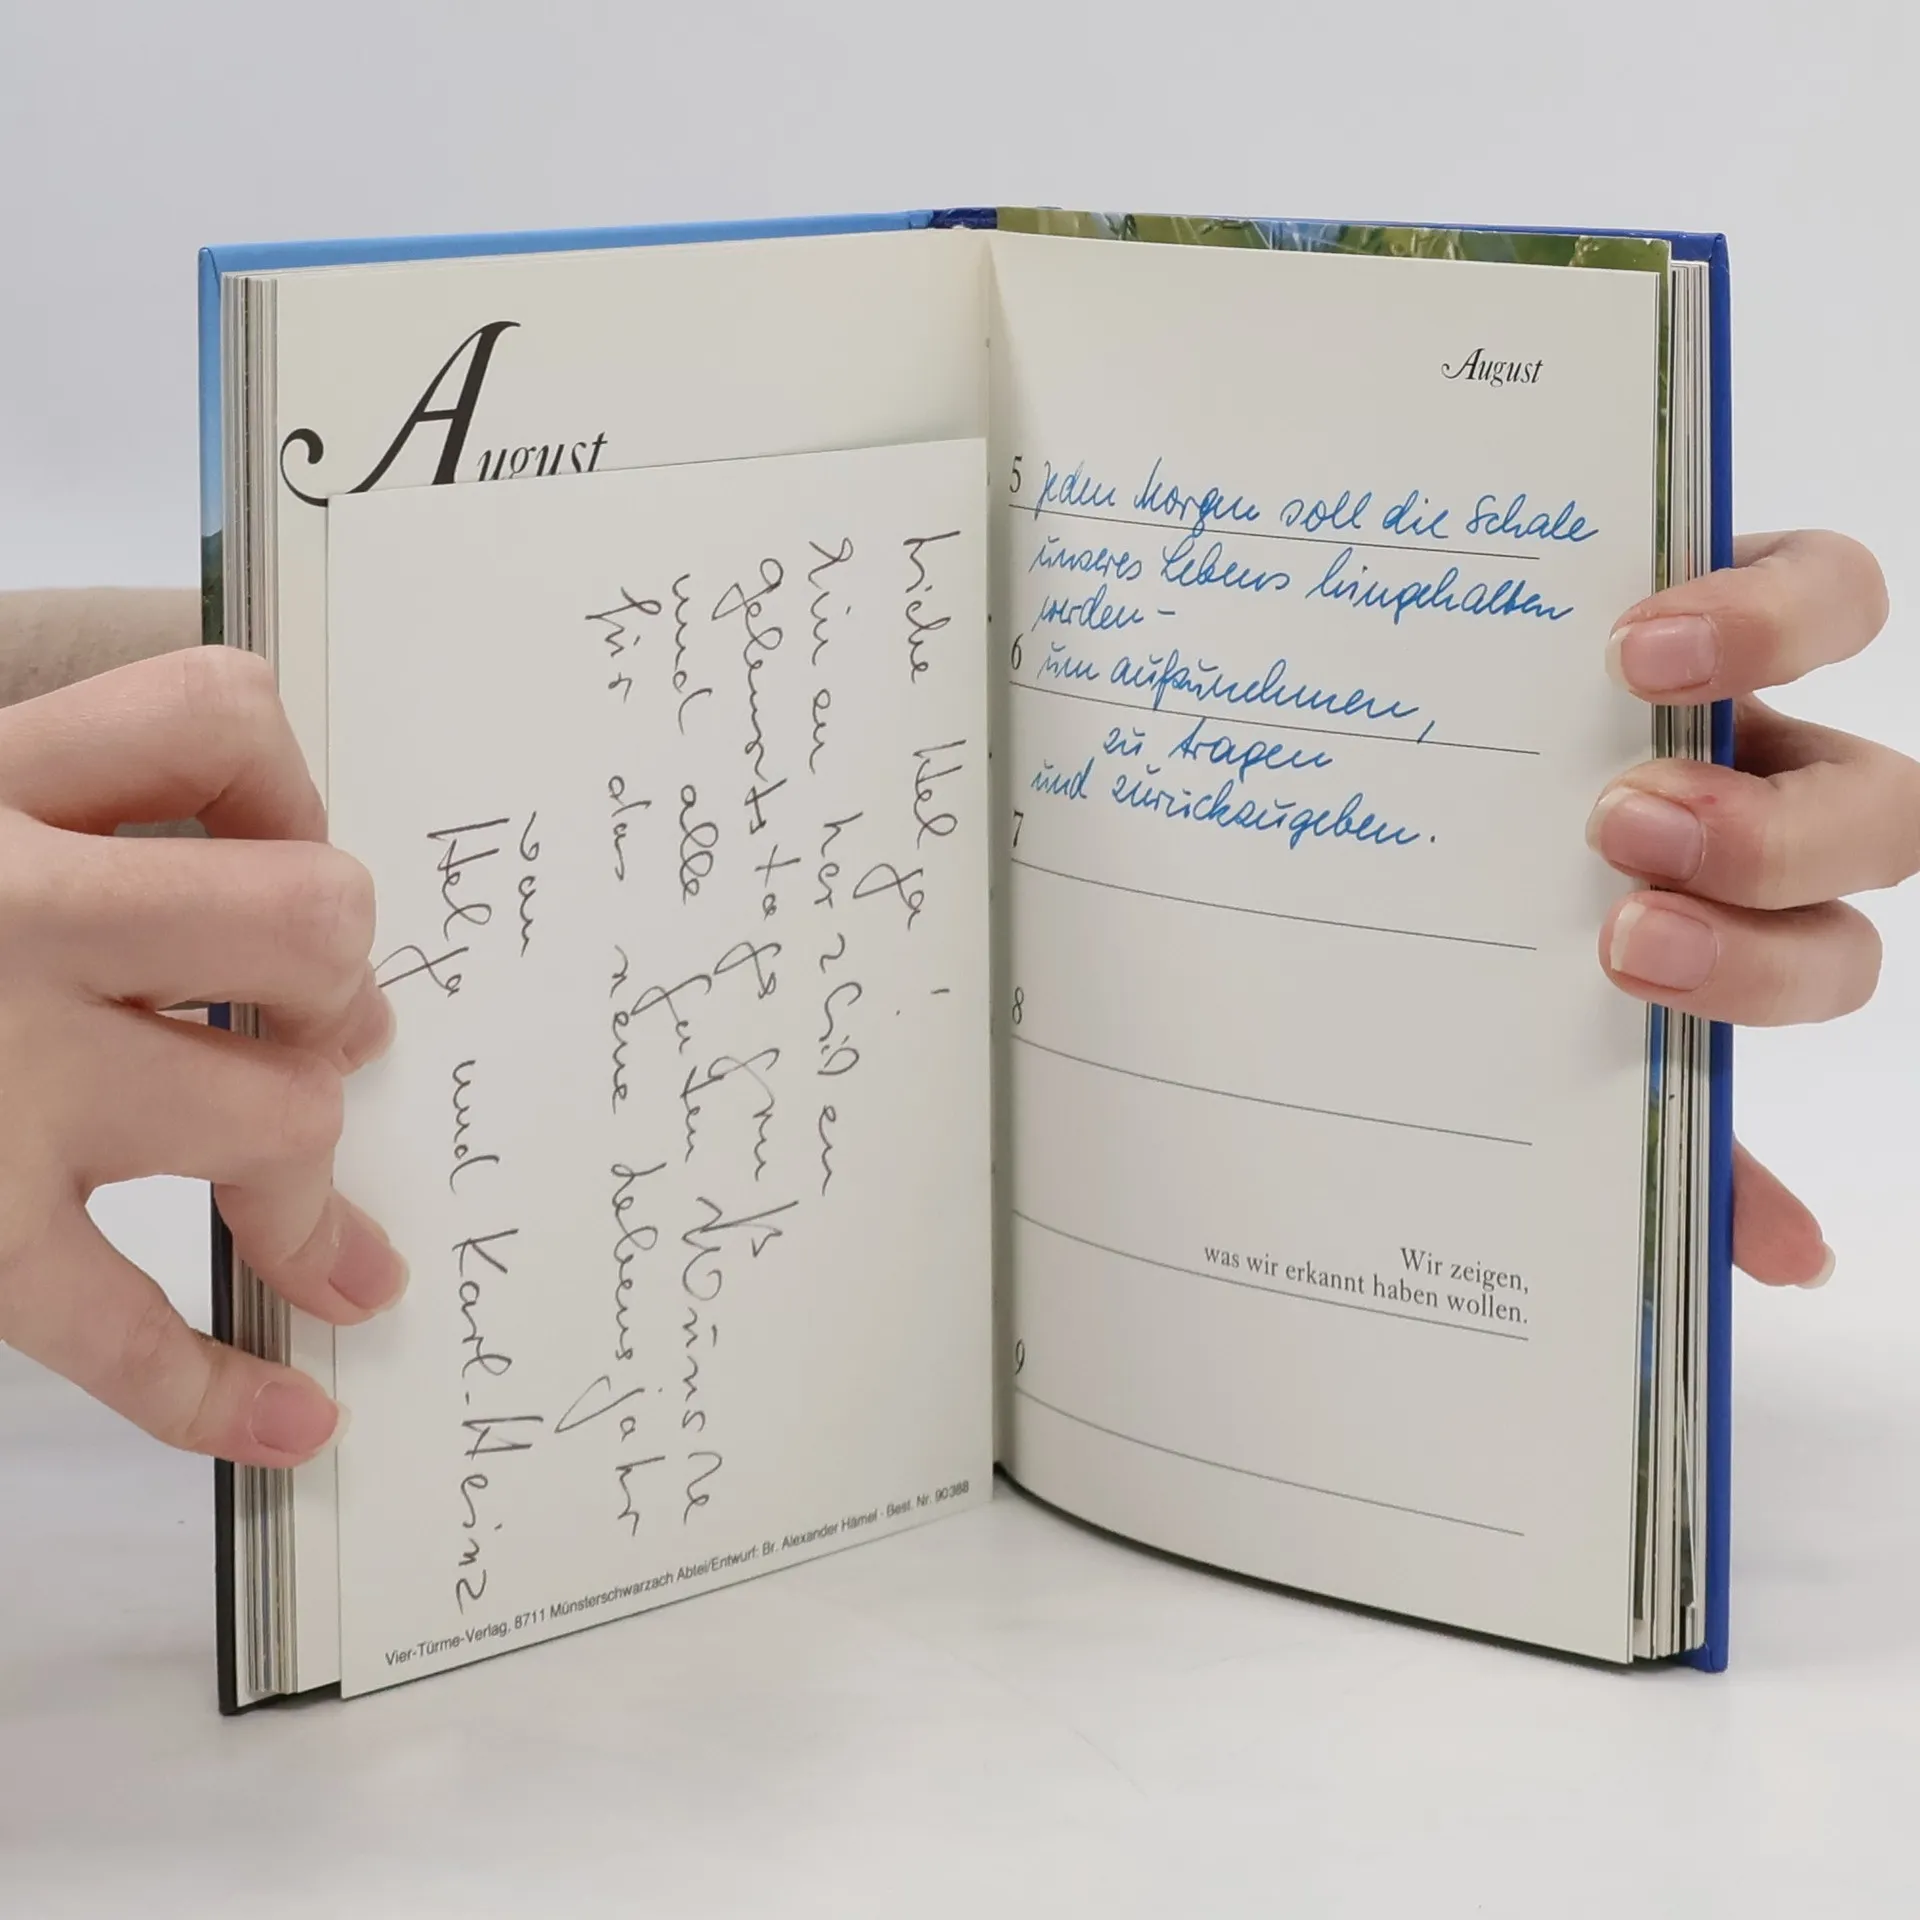 August
Liebe Helga!
Ein en herzlichen
geburtstagsgruß
und alle guten Wünsche
für das neue Lebensjahr
von
Helga und Karl-Heinz
Vier-Türme-Verlag, 8711 Münsterschwarzach Abtei/Entwurf: Br. Alexander Hämel · Best. Nr. 90388
August
5 Jeden Morgen soll die Schale
unseres Lebens hingehalten
werden -
6 um aufzunehmen,
zu tragen
und zurückzugeben.
7
8
Wir zeigen,
was wir erkannt haben wollen.
9